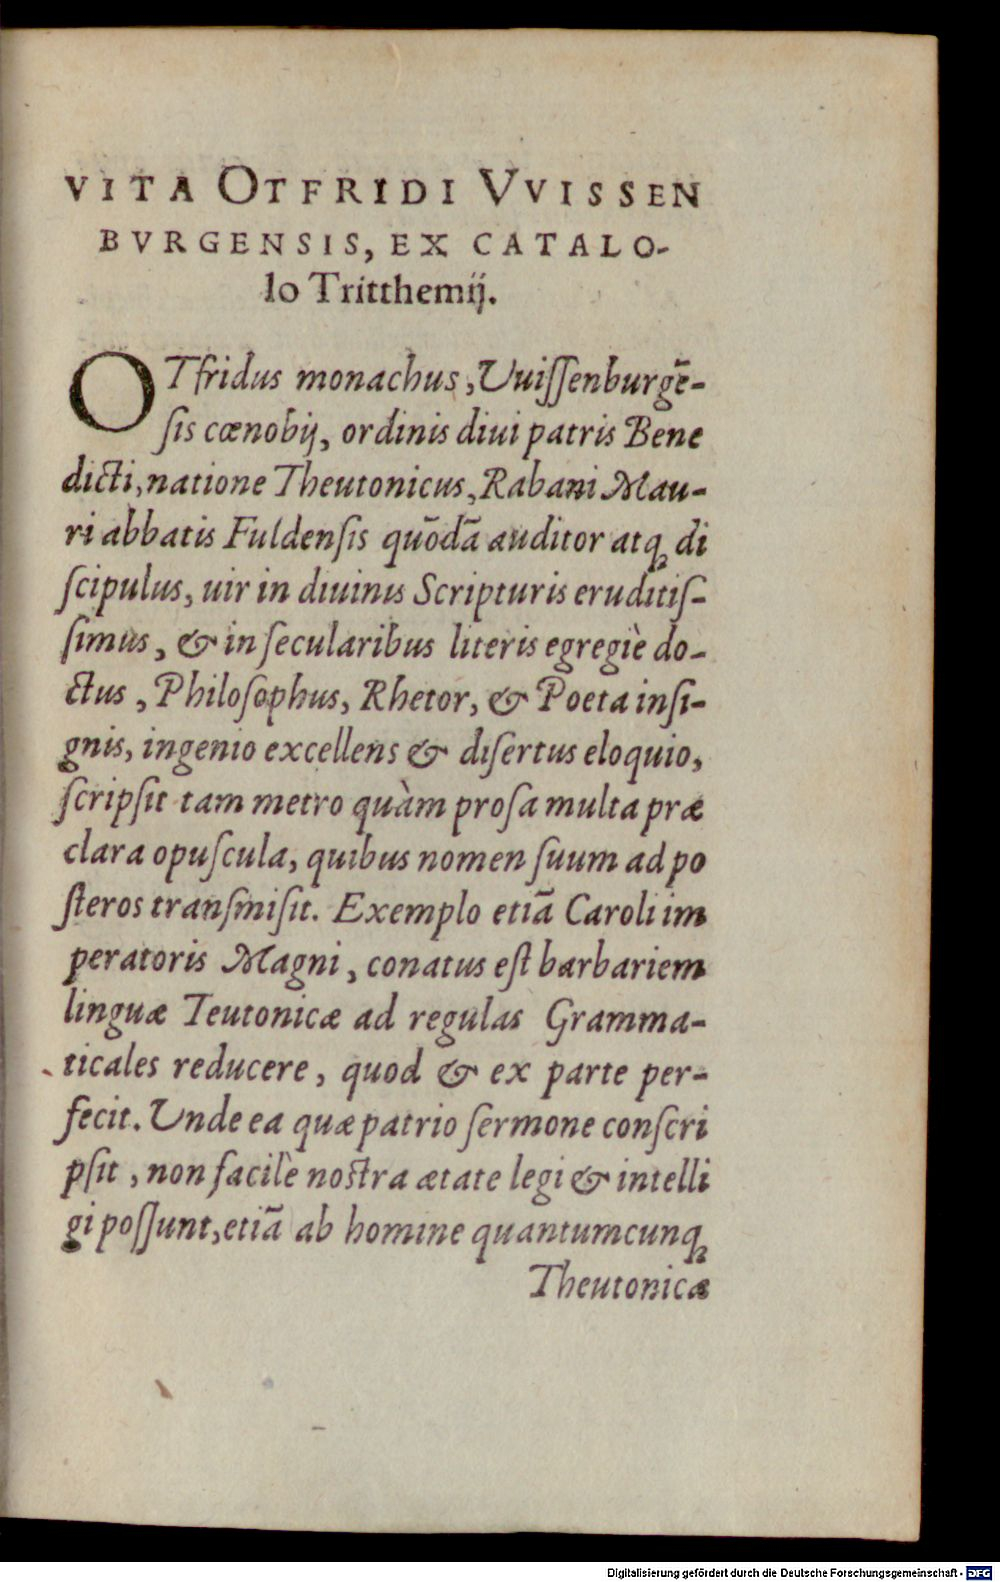 VITA OTFRIDI VVISSEN
BVRGENSIS, EX CATALO-
lo Tritthemij.
OTfridus monachus, Vuiſſenburgē-
ſis cœnobij, ordinis diui patris Bene
dicti, natione Theutonicus, Rabani Mau-
ri abbatis Fuldenſis quōdā auditor atq; di
ſcipulus, uir in diuinis Scripturis eruditiſ-
ſimus, & in ſecularibus literis egregiè do-
ctus, Philoſophus, Rhetor, & Poeta inſi-
gnis, ingenio excellens & diſertus eloquio,
ſcripſit tam metro quàm proſa multa præ
clara opuſcula, quibus nomen ſuum ad po
ſteros tranſmiſit. Exemplo etiā Caroli im
peratoris Magni, conatus eſt barbariem
linguæ Teutonicæ ad regulas Gramma-
ticales reducere, quod & ex parte per-
fecit. Vnde ea quæ patrio ſermone conſcri
pſit, non facilè noſtra ætate legi & intelli
gi poſſunt, etiā ab homine quantumcunq;
Theutonicæ
Digitalisierung gefördert durch die Deutsche Forschungsgemeinschaft - DFG